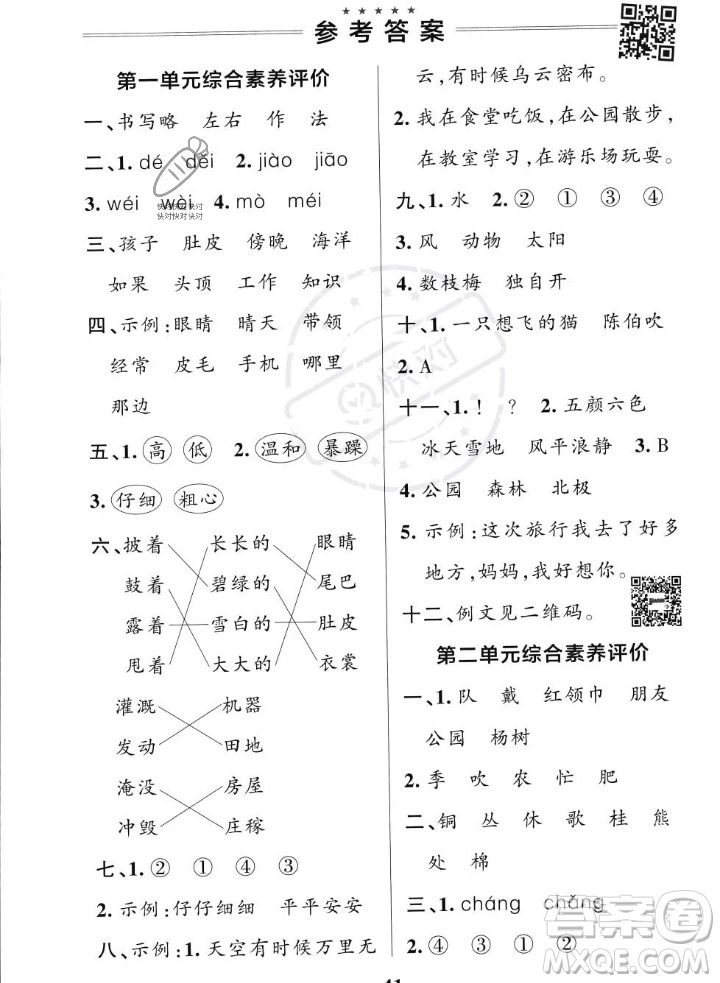 参考答案
第一单元综合素养评价
一、书写略 左右 作 法
二、1. dé děi 2. jiào jiāo
3. wéi wèi 4. mò méi
三、孩子 肚皮 傍晚 海洋
如果 头顶 工作 知识
四、示例:眼睛 晴天 带领
经常 皮毛 手机 哪里
那边
五、1. 高 低 2. 温和 暴躁
3. 仔细 粗心
六、披着 长长的 眼睛
鼓着 碧绿的 尾巴
露着 雪白的 肚皮
甩着 大大的 衣裳
灌溉 机器
发动 田地
淹没 房屋
冲毁 庄稼
七、1. ② ① ④ ③
2. 示例:仔仔细细 平平安安
八、示例:1. 天空有时候万里无
云,有时候乌云密布。
2. 我在食堂吃饭,在公园散步,
在教室学习,在游乐场玩耍。
九、1. 水 2. ② ① ③ ④
3. 风 动物 太阳
4. 数枝梅 独自开
十、1. 一只想飞的猫 陈伯吹
2. A
十一、1. ! ? 2. 五颜六色
冰天雪地 风平浪静 3. B
4. 公园 森林 北极
5. 示例:这次旅行我去了好多
地方,妈妈,我好想你。
十二、例文见二维码。
第二单元综合素养评价
一、1. 队 戴 红领巾 朋友
公园 杨树
2. 季 吹 农 忙 肥
二、铜 丛 休 歌 桂 熊
处 棉
三、1. cháng chǎng
2. ④ ③ ① ②
41
快对
快对快对快对
快对快对快对
答案圈
MXQE.COM